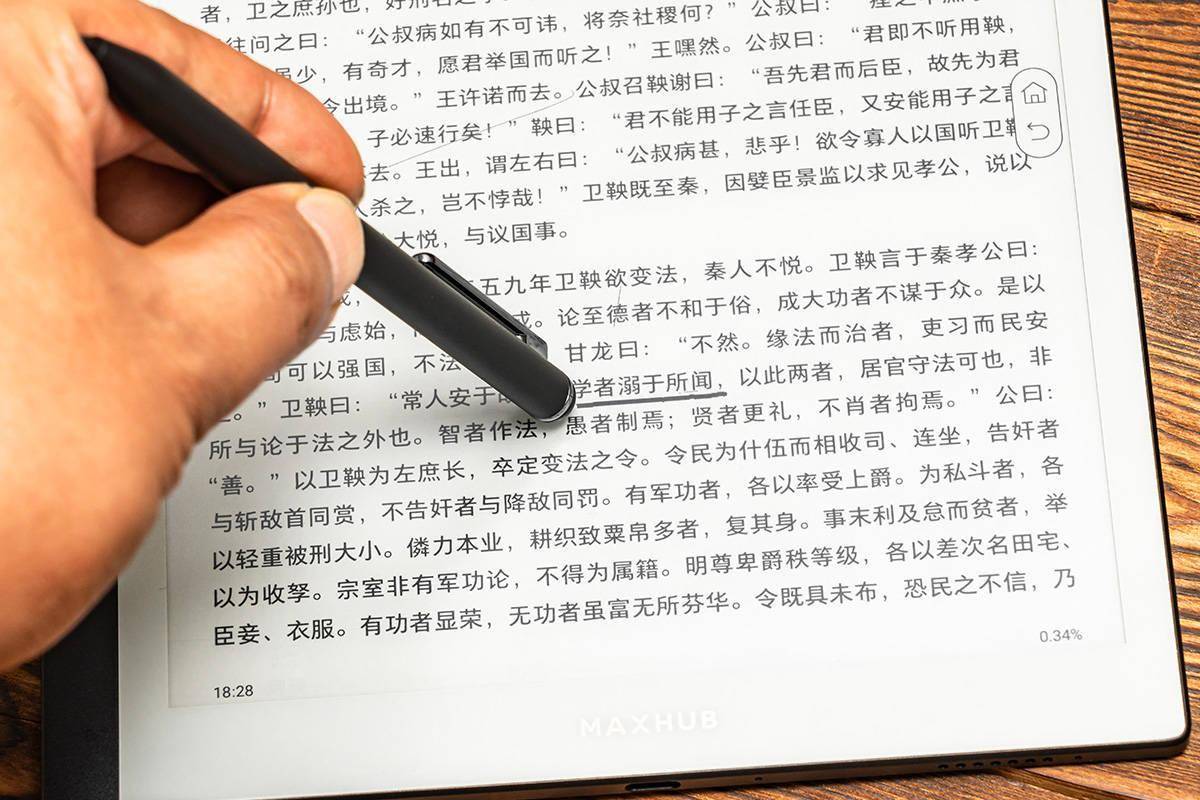 者，卫之庶孙也，好刑名之
往问之曰：“公叔病如有不可讳，将奈社稷何？”公叔曰：
虽少，有奇才，愿君举国而听之！”王嘿然。公叔曰：“君即不听用鞅，
令出境。”王许诺而去。公叔召鞅谢曰：“吾先君而后臣，故先为君
子必速行矣！”鞅曰：“君不能用子之言任臣，又安能用子之言
去。王出，谓左右曰：“公叔病甚，悲乎！欲令寡人以国听卫鞅
杀之，岂不悖哉！”卫鞅既至秦，因嬖臣景监以求见孝公，说以
大悦，与议国事。
五九年卫鞅欲变法，秦人不悦。卫鞅言于秦孝公曰：
与虑始，成。论至德者不和于俗，成大功者不谋于众。是以
可以强国，不法甘龙曰：“不然。缘法而治者，吏习而民安
之。”卫鞅曰：“常人安于学者溺于所闻，以此两者，居官守法可也，非
所与论于法之外也。智者作法，愚者制焉；贤者更礼，不肖者拘焉。”公曰：
“善。”以卫鞅为左庶长，卒定变法之令。令民为什伍而相收司、连坐，告奸者
与斩敌首同赏，不告奸者与降敌同罚。有军功者，各以率受上爵。为私斗者，各
以轻重被刑大小。僇力本业，耕织致粟帛多者，复其身。事末利及怠而贫者，举
以为收孥。宗室非有军功论，不得为属籍。明尊卑爵秩等级，各以差次名田宅、
臣妾、衣服。有功者显荣，无功者虽富无所芬华。令既具未布，恐民之不信，乃
18:28
0.34%
MAXHUB